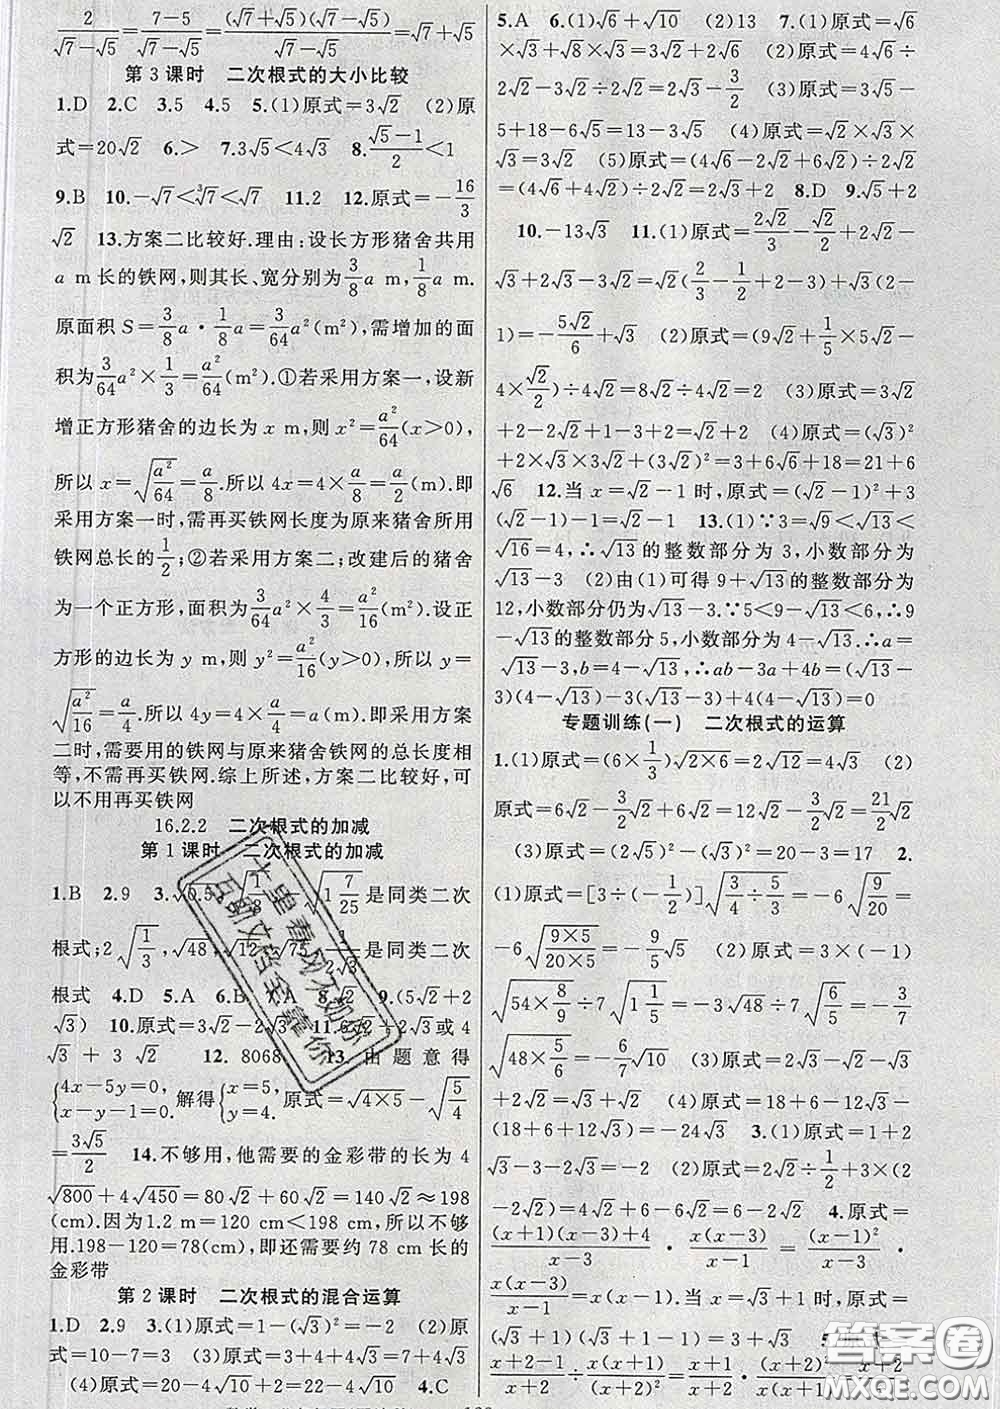 2/(√7−√5)=(7−5)/(√7−√5)=(√7+√5)(√7−√5)/(√7−√5)=√7+√5
第3课时 二次根式的大小比较
1.D 2.C 3.5 4.5 5.(1)原式=3√2 (2)原
式=20√2 6.> 7.3√5<4√3 8.(√5−1)/2<1
9.B 10.−√7<∛7<√7 11.2 12.原式=−16/3
√2 13.方案二比较好.理由:设长方形猪舍共用
a m长的铁网,则其长、宽分别为3/8a m,1/8a m.
原面积S=3/8a·1/8a=3/64a²(m²),需增加的面
积为3/64a²×1/3=a²/64(m²).①若采用方案一,设新
增正方形猪舍的边长为x m,则x²=a²/64(x>0),
所以x=√(a²/64)=a/8.所以4x=4×a/8=a/2(m).即
采用方案一时,需再买铁网长度为原来猪舍所用
铁网总长的1/2;②若采用方案二;改建后的猪舍
为一个正方形,面积为3/64a²×4/3=a²/16(m²).设正
方形的边长为y m,则y²=a²/16(y>0).所以y=
√(a²/16)=a/4.所以4y=4×a/4=a(m).即采用方案
二时,需要用的铁网与原来猪舍铁网的总长度相
等,不需再买铁网.综上所述,方案二比较好,可
以不用再买铁网
16.2.2 二次根式的加减
第1课时 二次根式的加减
1.B 2.9 3.√0.5,√(1/8),√(1 7/25)是同类二次
根式;2√(1/3),√48,√12,√75,1/(2√3)是同类二次
根式 4.D 5.A 6.B 7.A 8. 9.(5√2+2
√3) 10.原式=3√2−2√3 11.6√2+2√3或4
√3+3√2 12.8068 13.由题意得
{4x−5y=0,x−y−1=0.解得{x=5,y=4.原式=√(4×5)−√(5/4)
=3√5/2 14.不够用,他需要的金彩带的长为4
√800+4√450=80√2+60√2=140√2≈198
(cm).因为1.2 m=120 cm<198 cm,所以不够
用.198−120=78(cm),即还需要约78 cm长的
金彩带
第2课时 二次根式的混合运算
1.D 2.9 3.(1)原式=1−(√3)²=−2 (2)原
式=10−7=3 (3)原式=3+4+4√3=7+4√3
(4)原式=20−4√10+2=22−4√10 4.C
5.A 6.(1)√6+√10 (2)13 7.(1)原式=√6
×√3+√8×√3=3√2+2√6 (2)原式=4√6÷
2√2−3√2÷2√2=2√3−3/2 (3)原式=3√5−
5+18−6√5=13−3√5 (4)原式=√2×√3×
√3=3√2 (5)原式=(4√6−2√2+6√2)÷2√2
=(4√6+4√2)÷2√2=2√3+2 8.D 9.√5+2
10.−13√3 11.(1)原式=2√2/3−√2/2+2√3−
√3+2√3−2√2=(2/3−1/2−2)×√2+√3(2−
1)=−5√2/6+√3 (2)原式=(9√2+1/5×5√2−
4×√2/2)÷4√2=8√2÷4√2=2 (3)原式=3√2
+2−2√2+1−3+2=√2+2 (4)原式=(√3)²
+2√2×√3×3√2+(3√2)²=3+6√6+18=21+6
√6 12.当x=√2−1时,原式=(√2−1)²+3
(√2−1)−1=√2−1 13.(1)∵3=√9<√13<
√16=4,∴√13的整数部分为3,小数部分为
√13−3 (2)由(1)可得9+√13的整数部分为
12,小数部分仍为√13−3.∵5<9−√13<6,∴9
−√13的整数部分5,小数部分为4−√13.∴a=
√13−3,b=4−√13,∴ab−3a+4b=(√13−
3)(4−√13)−3(√13−3)+4(4−√13)=0
专题训练(一) 二次根式的运算
1.(1)原式=(6×1/3)√(2×6)=2√12=4√3 (2)
原式=6√2−3/2√2+6√2=12√2−3/2√2=21/2√2
(3)原式=(2√5)²−(√3)²=20−3=17 2.
(1)原式=[3÷(−1/4)]√(3/4÷5/3)=−6√(9/20)=
−6√(9×5/(20×5))=−9/5√5 (2)原式=3×(−1)
√(54×8/9)÷7√(1 1/5)=−3√48÷7√(6/5)=−3/7
√(48×5/6)=−6/7√10 (3)原式=2√3−√2−√3
+2√2=√3+√2 (4)原式=18+6−12√3−
(18+6+12√3)=−24√3 3.(1)原式=1+2
√3−3−2√3=−2 (2)原式=2√2÷1/2+3×(2
−2√2)=4√2+6−6√2=6−2√2 4.原式=
((x+1)(x−3)+4)/(x−3)·x(x−3)/(x−1)=(x−1)²/(x−3)·
x(x−3)/(x−1)=x(x−1).当x=√3+1时,原式=
(√3+1)(√3+1−1)=3+√3 5.原式=
(x+2−1)/(x+2)÷x(x+1)/(x+2)²=(x+1)/(x+2)·(x+2)²/x(x+1)=(x+2)/x
十里春风不如你
互助文档全靠你
答案圈
MXQE.COM